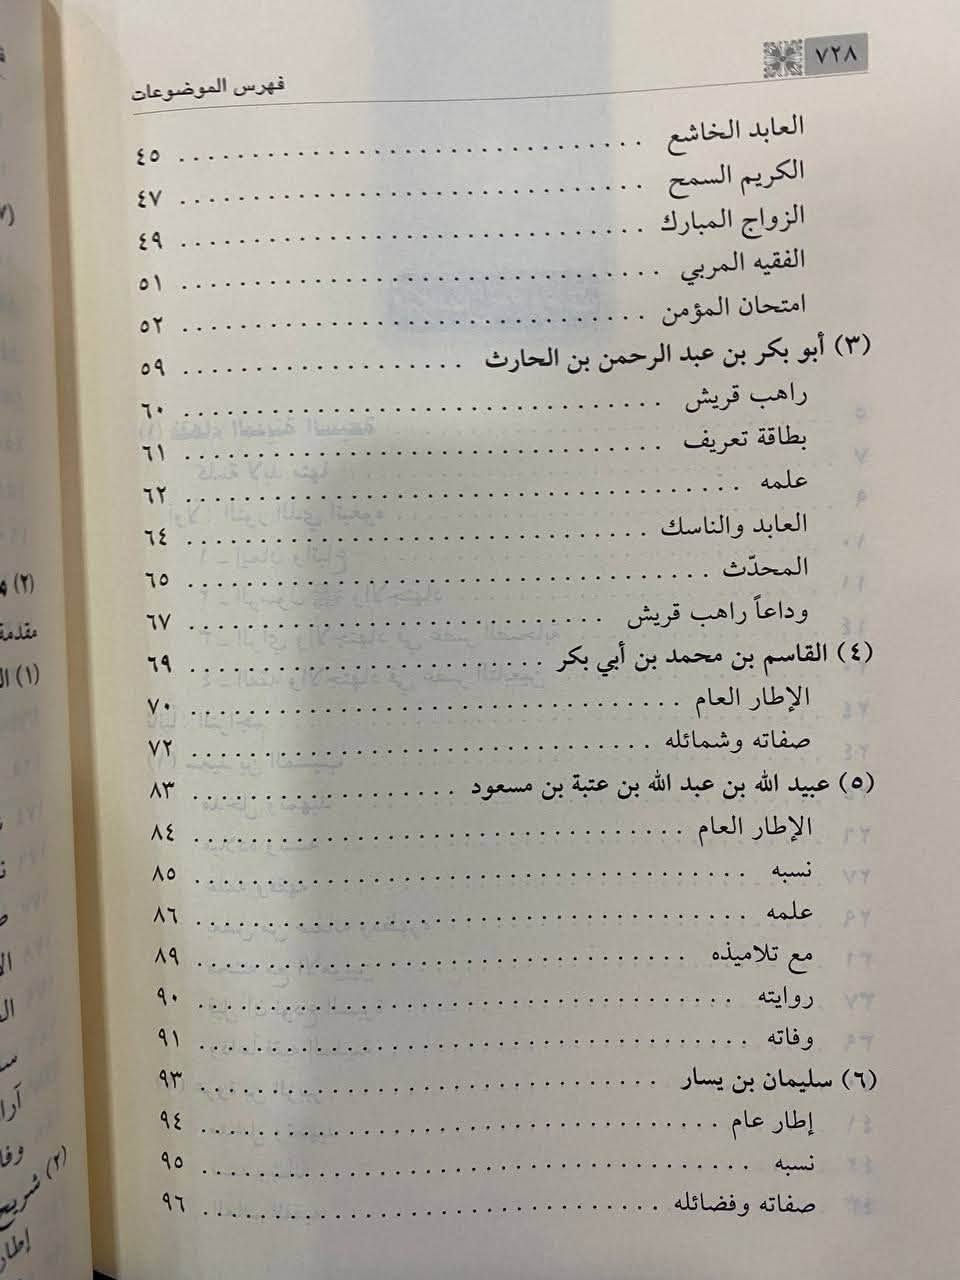 ٧٢٨
فهرس الموضوعات
العابد الخاشع . . . . . . . . . . ٤٥
الكريم السمح . . . . . . . . . . ٤٧
الزواج المبارك . . . . . . . . . . ٤٩
الفقيه المربي . . . . . . . . . . ٥١
امتحان المؤمن . . . . . . . . . . ٥٢
(٣) أبو بكر بن عبد الرحمن بن الحارث . . . . . . . . . . ٥٩
راهب قريش . . . . . . . . . . ٦٠
بطاقة تعريف . . . . . . . . . . ٦١
علمه . . . . . . . . . . ٦٢
العابد والناسك . . . . . . . . . . ٦٤
المحدّث . . . . . . . . . . ٦٥
وداعاً راهب قريش . . . . . . . . . . ٦٧
(٤) القاسم بن محمد بن أبي بكر . . . . . . . . . . ٦٩
الإطار العام . . . . . . . . . . ٧٠
صفاته وشمائله . . . . . . . . . . ٧٢
(٥) عبيد الله بن عبد الله بن عتبة بن مسعود . . . . . . . . . . ٨٣
الإطار العام . . . . . . . . . . ٨٤
نسبه . . . . . . . . . . ٨٥
علمه . . . . . . . . . . ٨٦
مع تلاميذه . . . . . . . . . . ٨٩
روايته . . . . . . . . . . ٩٠
وفاته . . . . . . . . . . ٩١
(٦) سليمان بن يسار . . . . . . . . . . ٩٣
إطار عام . . . . . . . . . . ٩٤
نسبه . . . . . . . . . . ٩٥
صفاته وفضائله . . . . . . . . . . ٩٦
(٢)
مقدمة
(١)
(٢) شريح